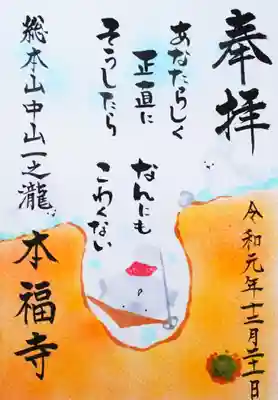 奉拝
令和元年十二月二十一日
あなたらしく
正直に
そうしたら
なんにも
こわくない
総本山中山一之瀧
本福寺